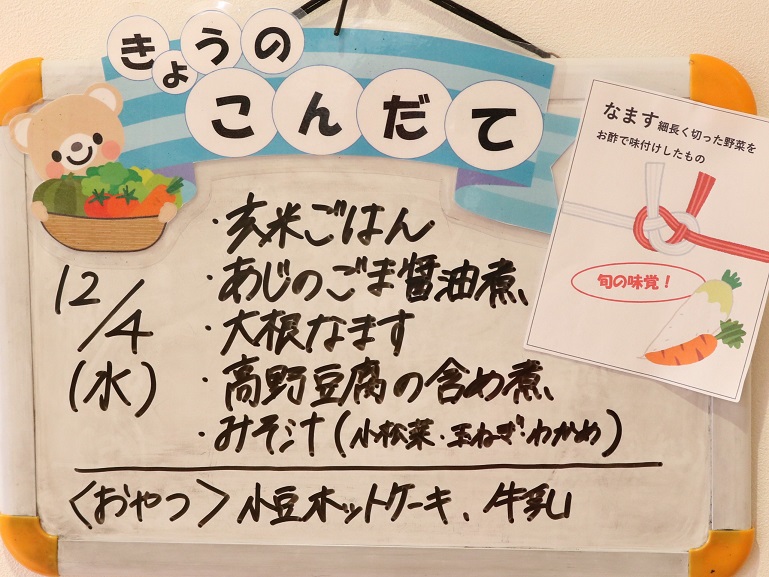 きょうの
こんだて
なます 細長く切った野菜を
お酢で味付けしたもの
旬の味覚!
12/4
(水)
・玄米ごはん
・あじのごま醤油煮
・大根なます
・高野豆腐の含め煮
・みそ汁(小松菜・玉ねぎ・わかめ)
<おやつ> 小豆ホットケーキ、牛乳